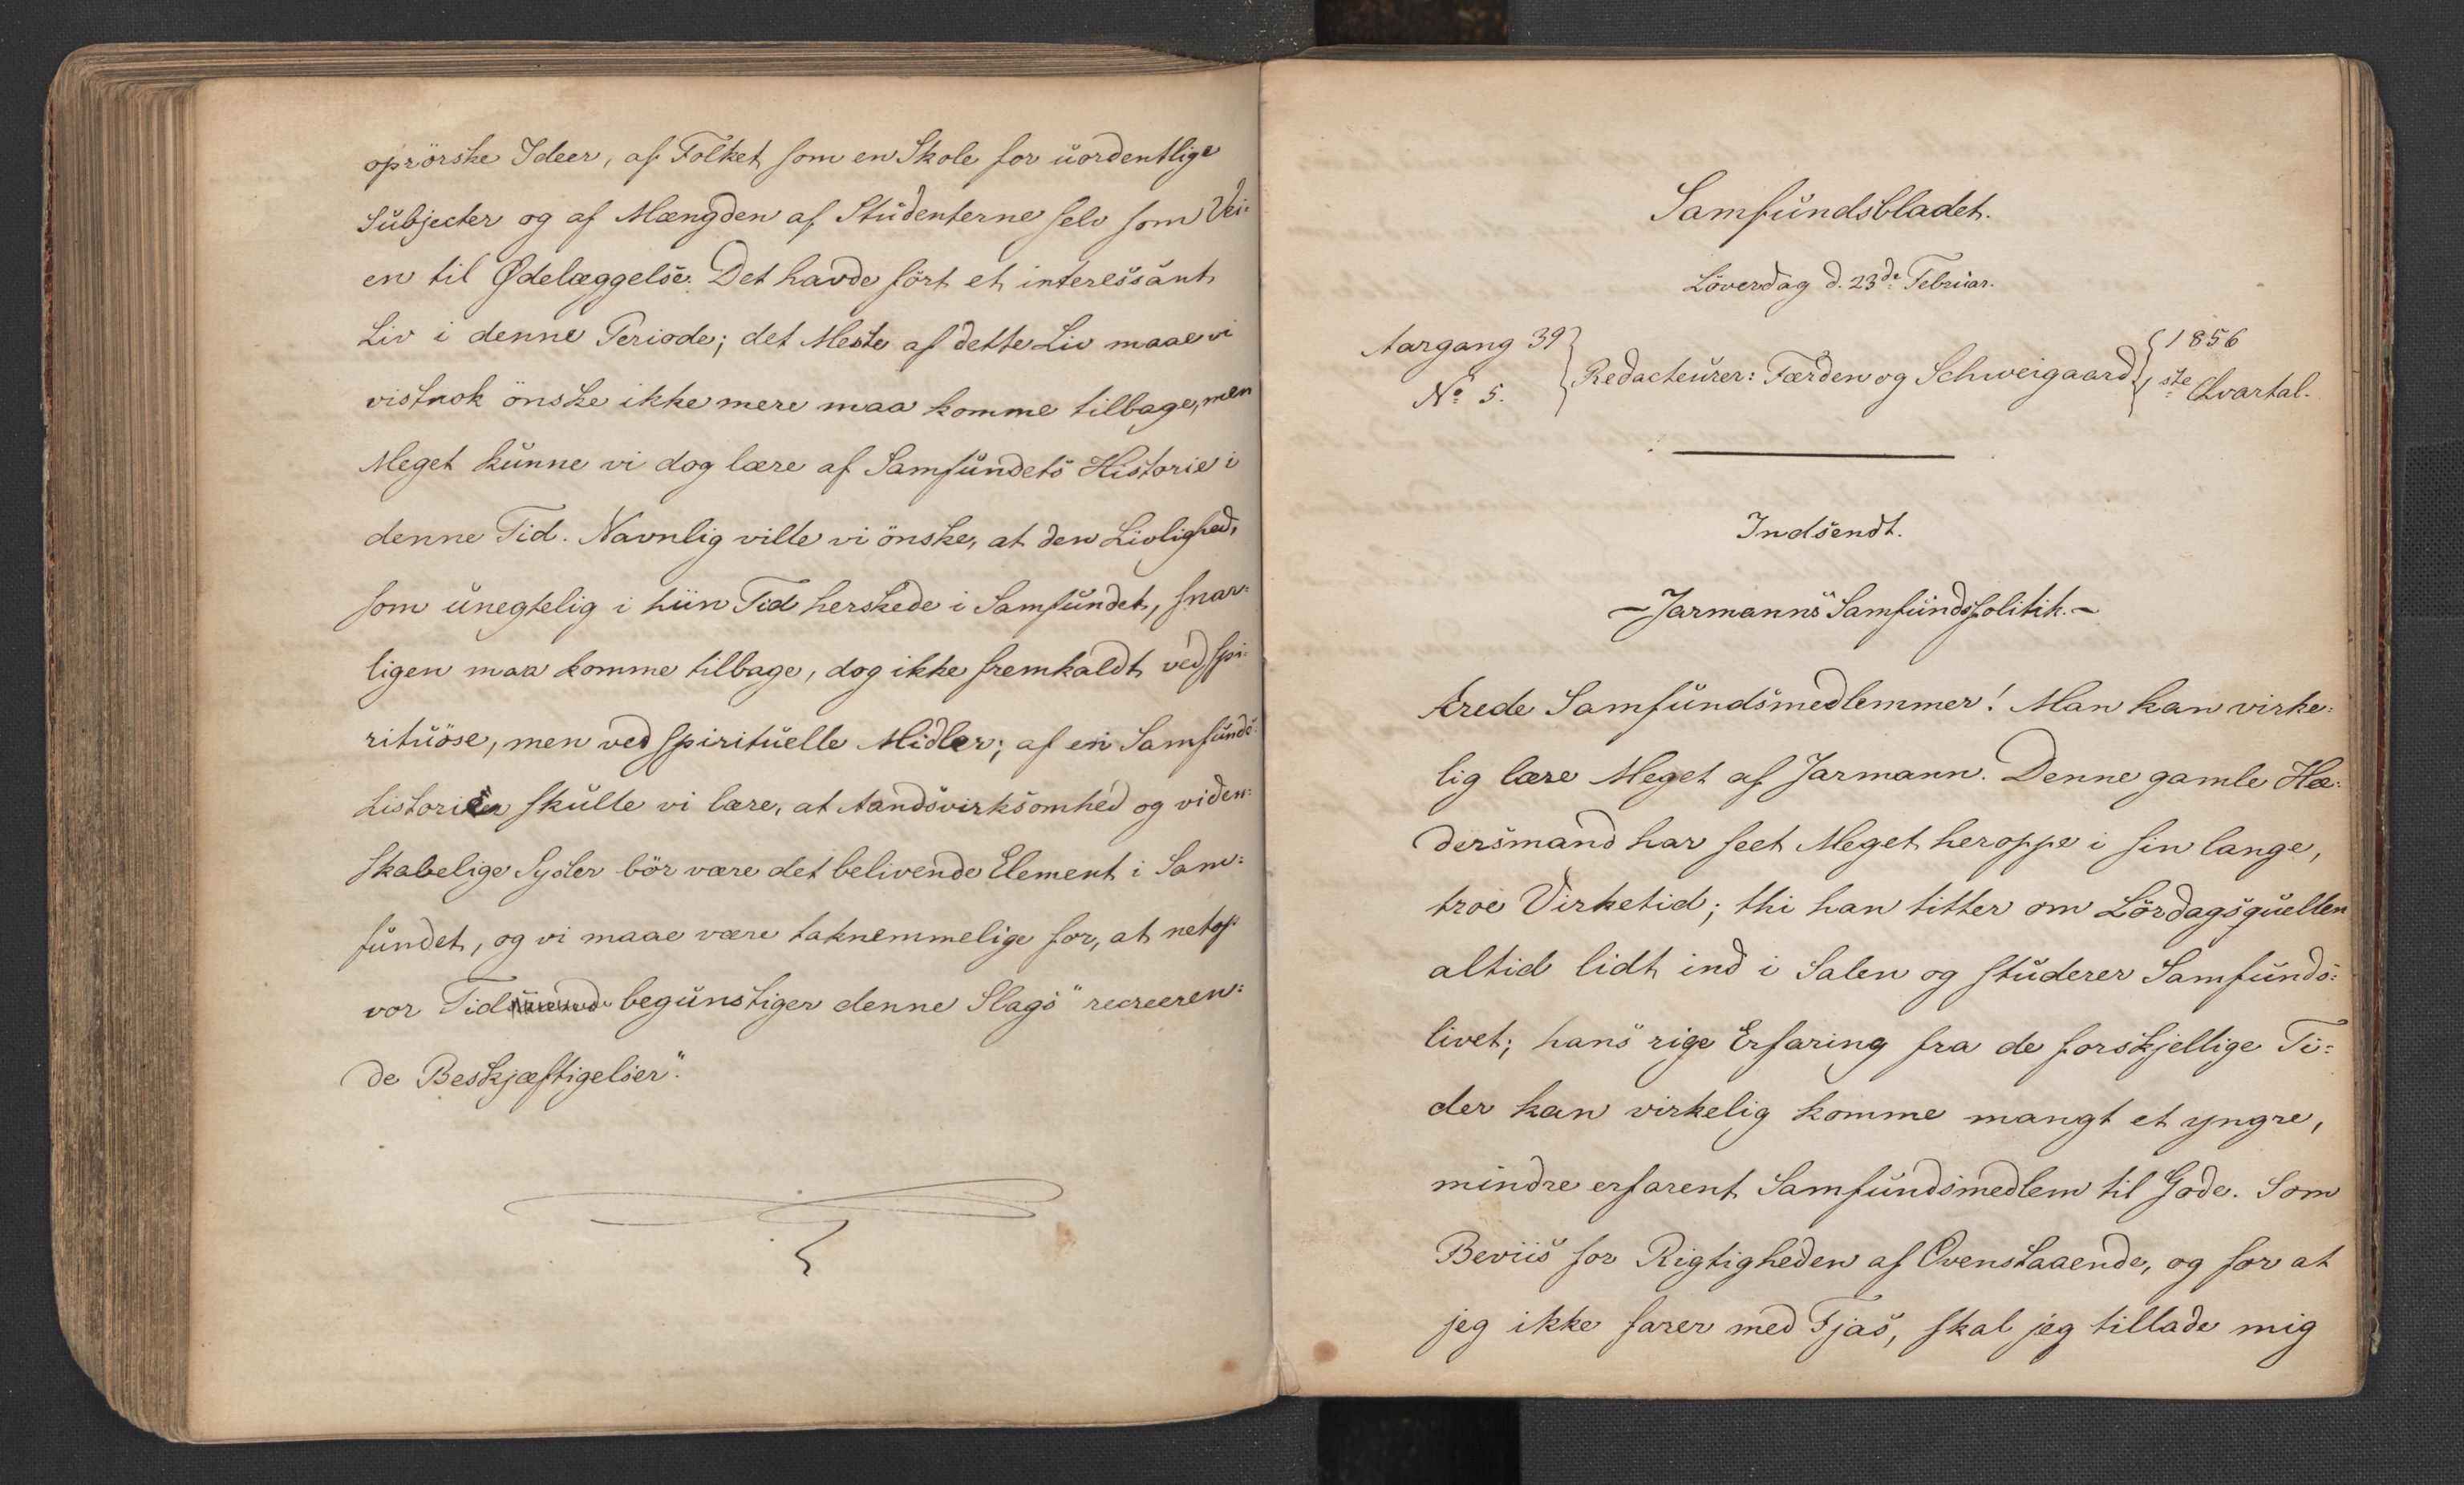 oprörske Ideer, af Folket som en Skole for uordentlige
Subjecter og af Mængden af Studenterne selv som Vei-
en til Ødelæggelse. Det havde fört et interessant
Liv i denne Periode; det Meste af dette Liv maae vi
vistnok önske ikke mere maa komme tilbage, men
Meget kunne vi dog lære af Samfundets Historie i
denne Tid. Navnlig ville vi önske, at den Livlighed,
som unegtelig i hiin Tid herskede i Samfundet, snar-
ligen maa komme tilbage, dog ikke fremkaldt ved spi-
rituöse, men ved spirituelle Midler; af en Samfunds-
historien skulle vi lære, at Aandsvirksomhed og viden-
skabelige Sysler bör være det belivende Element i Sam-
fundet, og vi maae være taknemmelige for, at netop
vor Tids begunstiger denne Slags "recreeren-
de Beskjæftigelser".
Samfundsbladet.
Löverdag d. 23de Februar.
Aargang 39 } Redacteurer: Færden og Schweigaard { 1856
No 5. 1ste Qvartal.
Indsendt.
- Jarmanns Samfundspolitik. -
Ærede Samfundsmedlemmer! Man kan virke-
lig lære Meget af Jarmann. Denne gamle Hæ-
dersmand har seet Meget heroppe i sin lange,
troe Virketid; thi han titter om Lördagsquellen
altid lidt ind i Salen og studerer Samfunds-
livet; hans rige Erfaring fra de forskjellige Ti-
der kan virkelig komme mangt et yngre,
mindre erfarent Samfundsmedlem til Gode. Som
Beviis for Rigtigheden af Ovenstaaende, og for at
jeg ikke farer med Fjas, skal jeg tillade mig